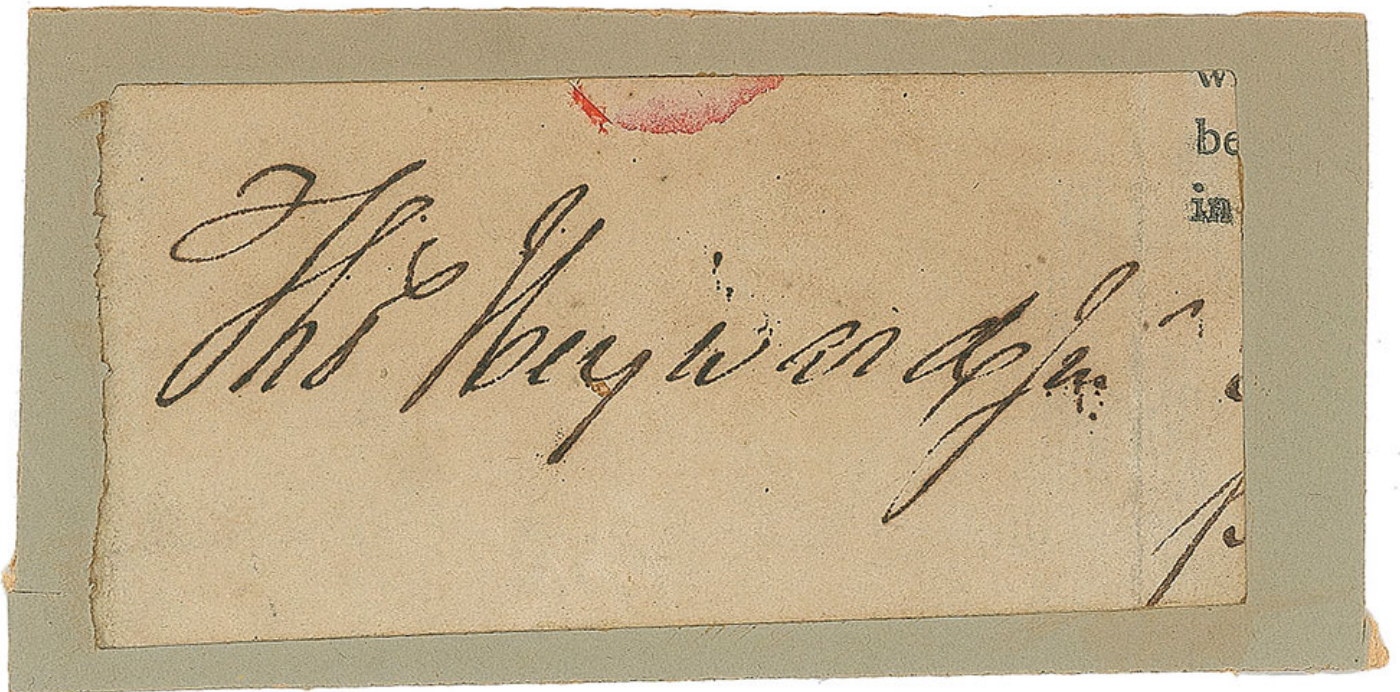 w
be
in
Thos Heyward Jun